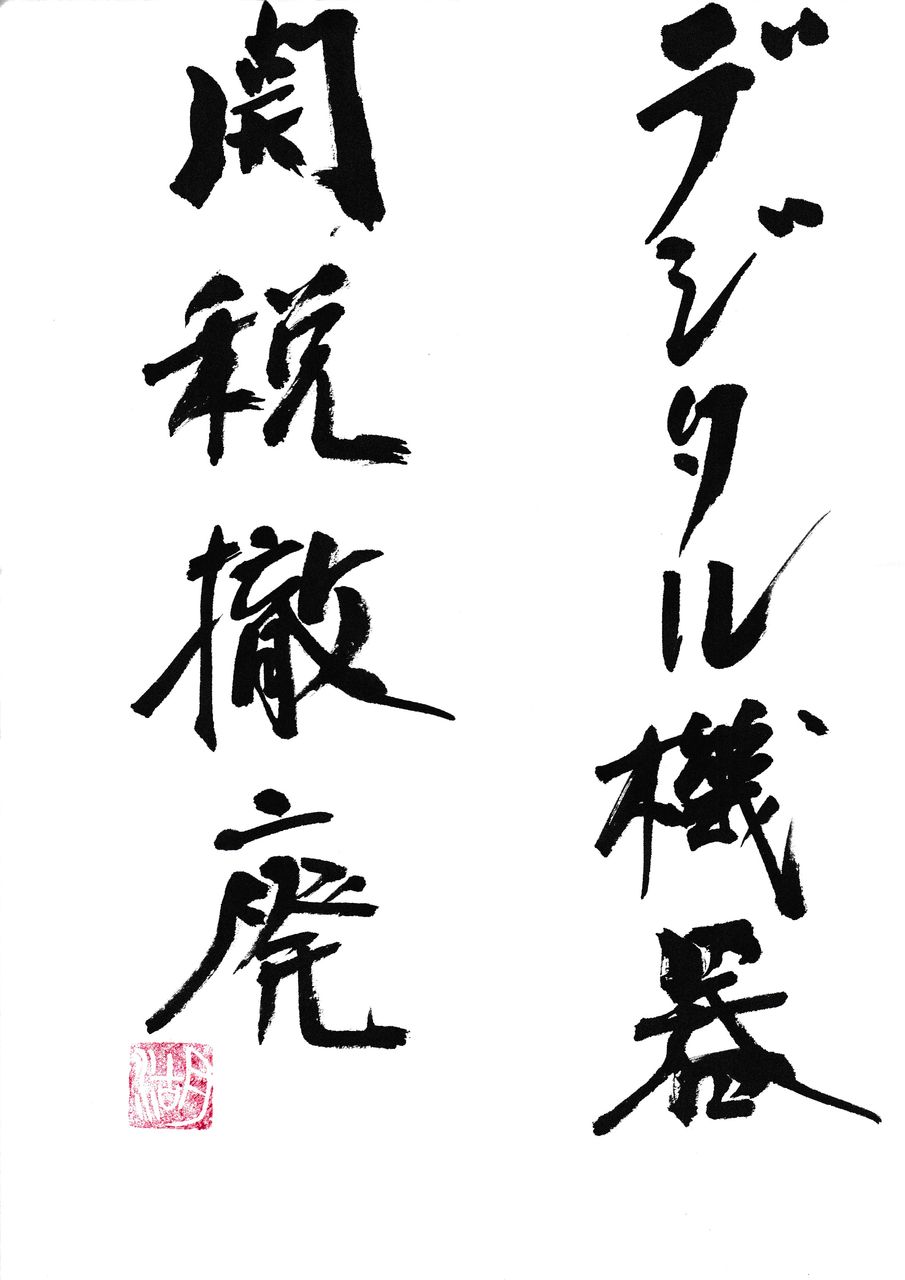 デジタル機器
関税撤廃
湖